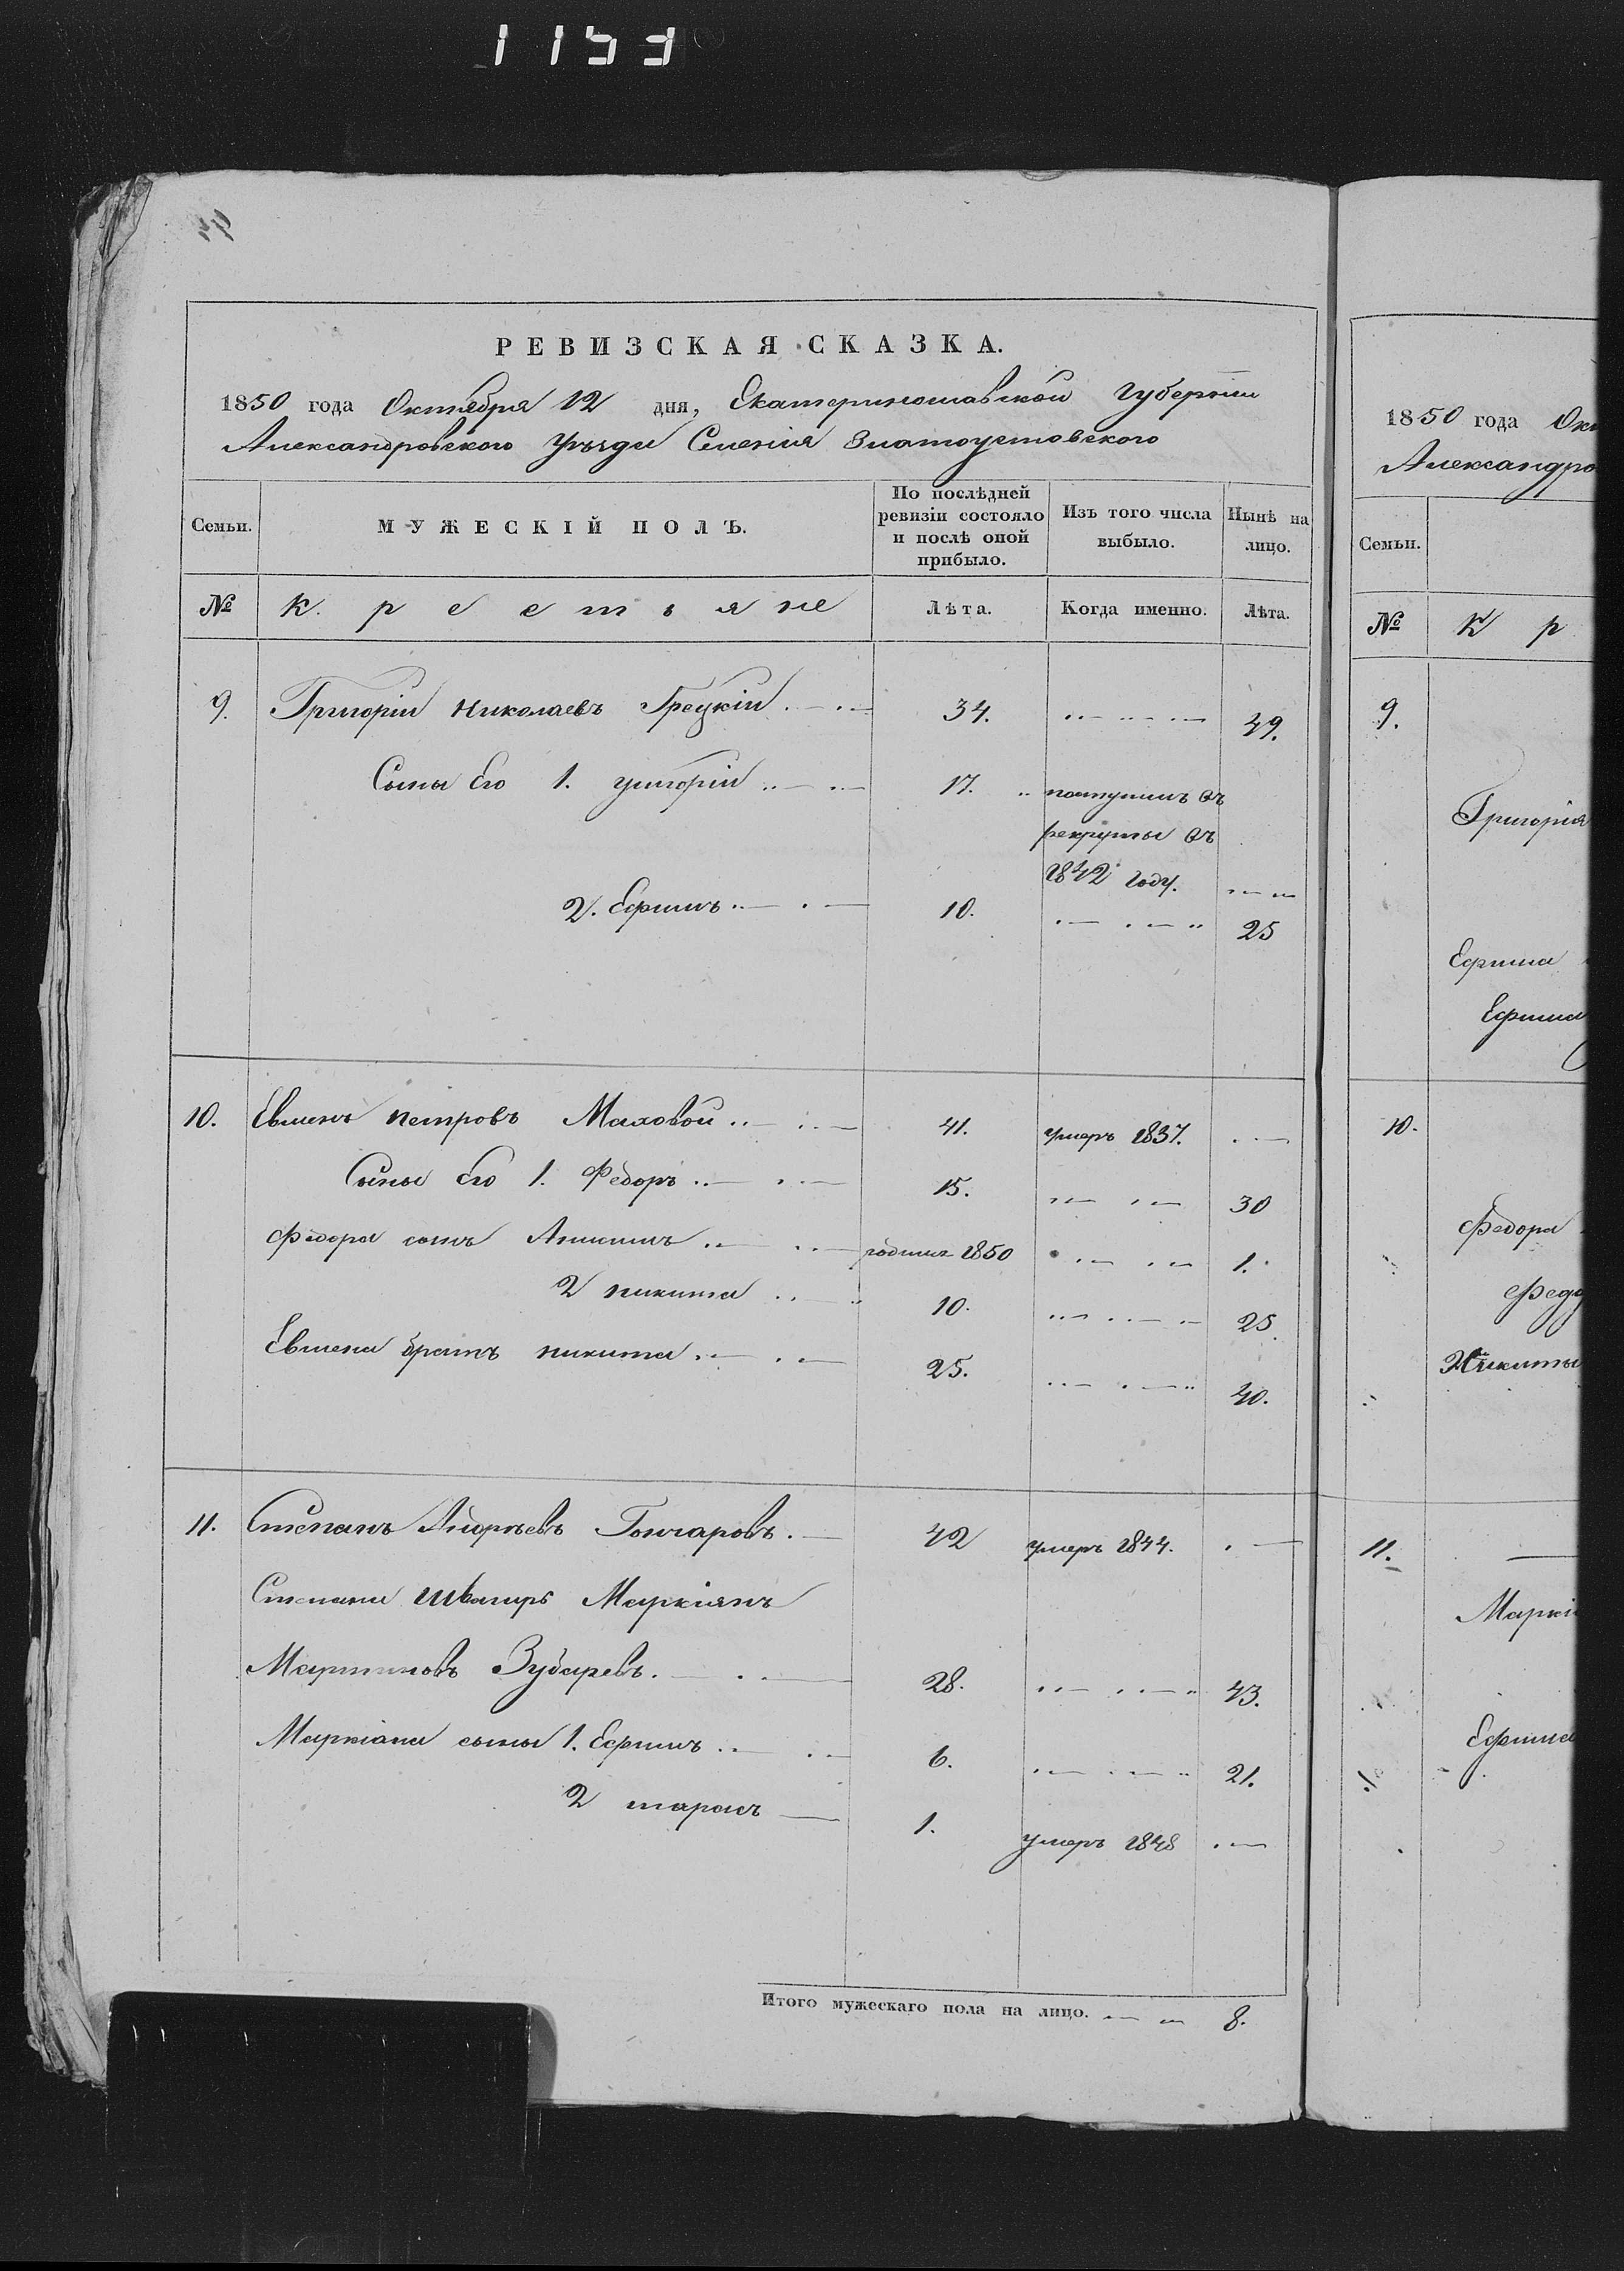 1153
РЕВИЗСКАЯ СКАЗКА.
1850 года Октября 12 дня, Екатеринославской губернии
Александровского Уѣзда Селенія Златоустовского
Семьи. МУЖЕСКІЙ ПОЛЪ. По послѣдней ревизіи состояло и послѣ оной прибыло. Изъ того числа выбыло. Нынѣ на лицо.
№ Крестьяне Лѣта. Когда именно. Лѣта.
9. Григорій Николаевъ Грецкій 34. 49.
Сыны Его 1. Григорій 17. поступилъ въ
рекруты въ
1842 году.
2. Ефимъ 10. 25
10. Евменъ Петровъ Маховой 41. умеръ 1837.
Сыны Его 1. Федоръ 15. 30
Федора сынъ Анисимъ родился 1850 1.
2 Никита 10. 25
Евмена братъ Никита 25. 40.
11. Степанъ Андрѣевъ Гончаровъ. 42 умеръ 1844.
Степана Швагиръ Маркіянъ
Мартиновъ Зубаревъ. 28. 43.
Маркіана сыны 1. Ефимъ 6. 21.
2 Тарасъ 1. умеръ 1848
Итого мужескаго пола на лицо. 8.
1850 года Ок
Александро
Семьи.
№ К р
9.
Григорія
Ефима
Ефима
10.
Федора
Федо
Никиты
11.
Маркі
Ефима